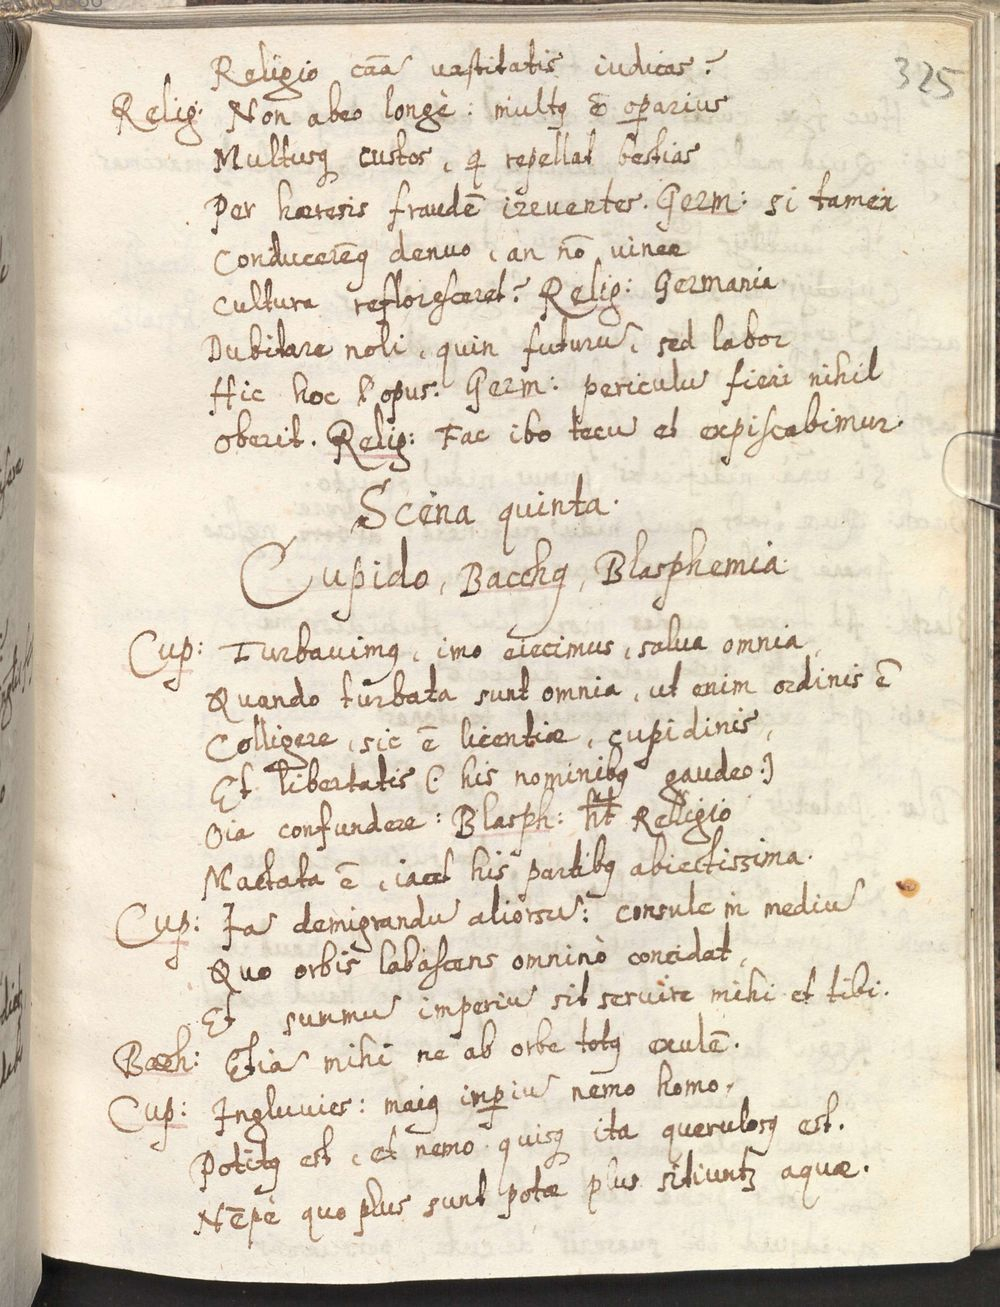 325
Religio cāā vastitatis iudicas?
Relig: Non abeo longè: multꝰ ē oparius
Multusq custos, q repellat bestias
Per hæresis fraudē irēuentes. Germ: si tamen
Conducerēq denuo, an nō vineæ
Cultura refloresceret? Relig: Germania
Dubitare noli, quin futurū, sed labor
Hic hoc opus. Germ: periculū fieri nihil
oberit. Relig: Fac ibo tecū et expiscabimur.
Scena quinta.
Cupido, Bacchꝰ, Blasphemia
Cup: Turbauimꝰ, imo eiecimus, salva omnia,
Quando turbata sunt omnia, ut enim ordinis ē
Colligere, sic ē licentiæ, cupidinis,
Et libertatis (: his nominibꝰ gaudeo:)
Oīa confundere: Blasph: Religio
Mactata ē, iacet his partibꝰ abiectissima.
Cup: Ia demigrandū aliorsū: consule in mediū
Quo orbis labascens omninò concidat,
Et summū imperiū sit seruire mihi et tibi.
Bacch: Etiā mihi ne ab orbe totꝰ exulē.
Cup: Ingluuies: maiꝰ impiū nemo homo,
Potitꝰ est, et nemo quisq ita querulosꝰ est.
Nēpè quo plus sunt potæ plus sitiuntꝛ aquæ.